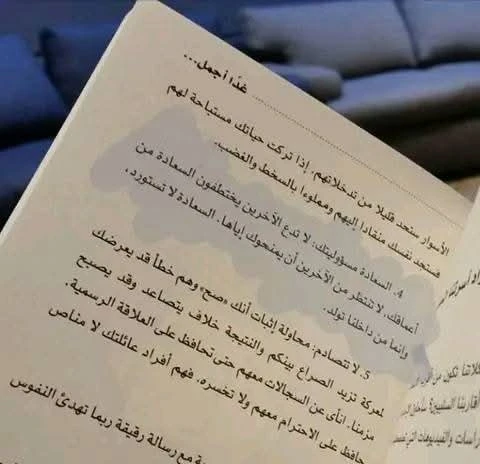 غدًا أجمل...
الأسوار ستحد قليلا من تدخلاتهم. إذا تركت حياتك مستباحة لهم
فستجد نفسك منقادا إليهم ومملوءا بالسخط والغضب.
4. السعادة مسؤوليتك: لا تدع الآخرين يختطفون السعادة من
أعماقك. لا تنتظر من الآخرين أن يمنحوك إياها. السعادة لا تستورد،
وإنما من داخلنا تولد.
5. لا تتصادم: محاولة إثبات أنك «صح» وهم خطأ قد يعرضك
لمعركة تزيد الصراع بينكم والنتيجة خلاف يتصاعد وقد يصبح
مزمنا. انأى عن السجالات معهم حتى تحافظ على العلاقة الرسمية.
حافظ على الاحترام معهم ولا تخسره. فهم أفراد عائلتك لا مناص
مع رسالة رقيقة ربما تهدئ النفوس